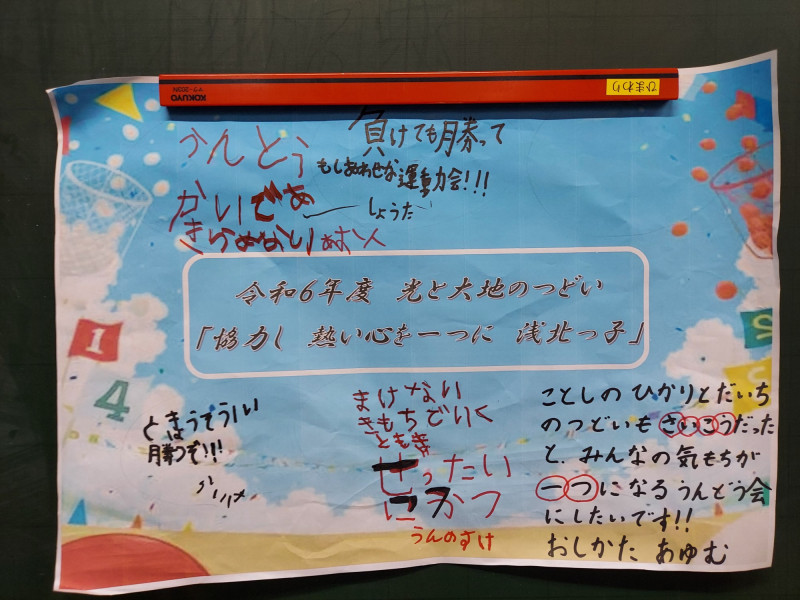 KOKUYO
ひまわり
うんとう
かいであ
きらめなしりあすへ
負けても勝って
もしあわせな運動会!!!
しょうた
令和6年度 光と大地のつどい
「協力し 熱い心を一つに 浅北っ子」
1
4
まけない
きもちでいく
ともき
ぜったい
にかつ
うんのすけ
勝つぞ!!!
ことしの ひかりとだいち
のつどいも さいこうだった
と、みんなの気もちが
一つになるうんどう会
にしたいです!!
おしかた あゆむ